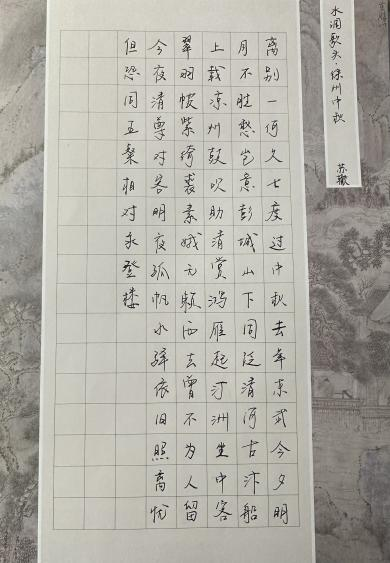 水调歌头·徐州中秋
苏辙
离别一何久七度过中秋去年东武今夕明
月不胜愁岂意彭城山下同泛清河古汴船
上载凉州鼓吹助清赏鸿雁起汀洲坐中客
翠羽帔紫绮裘素娥无赖西去曾不为人留
今夜清尊对客明夜孤帆水驿依旧照离忧
但恐同王粲相对永登楼